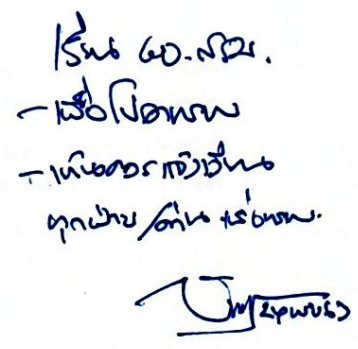 เรียน ผอ.สวช.
- เพื่อโปรดทราบ
- เห็นควรแจ้งเวียน
ทุกฝ่าย/ส่วน เพื่อทราบ.